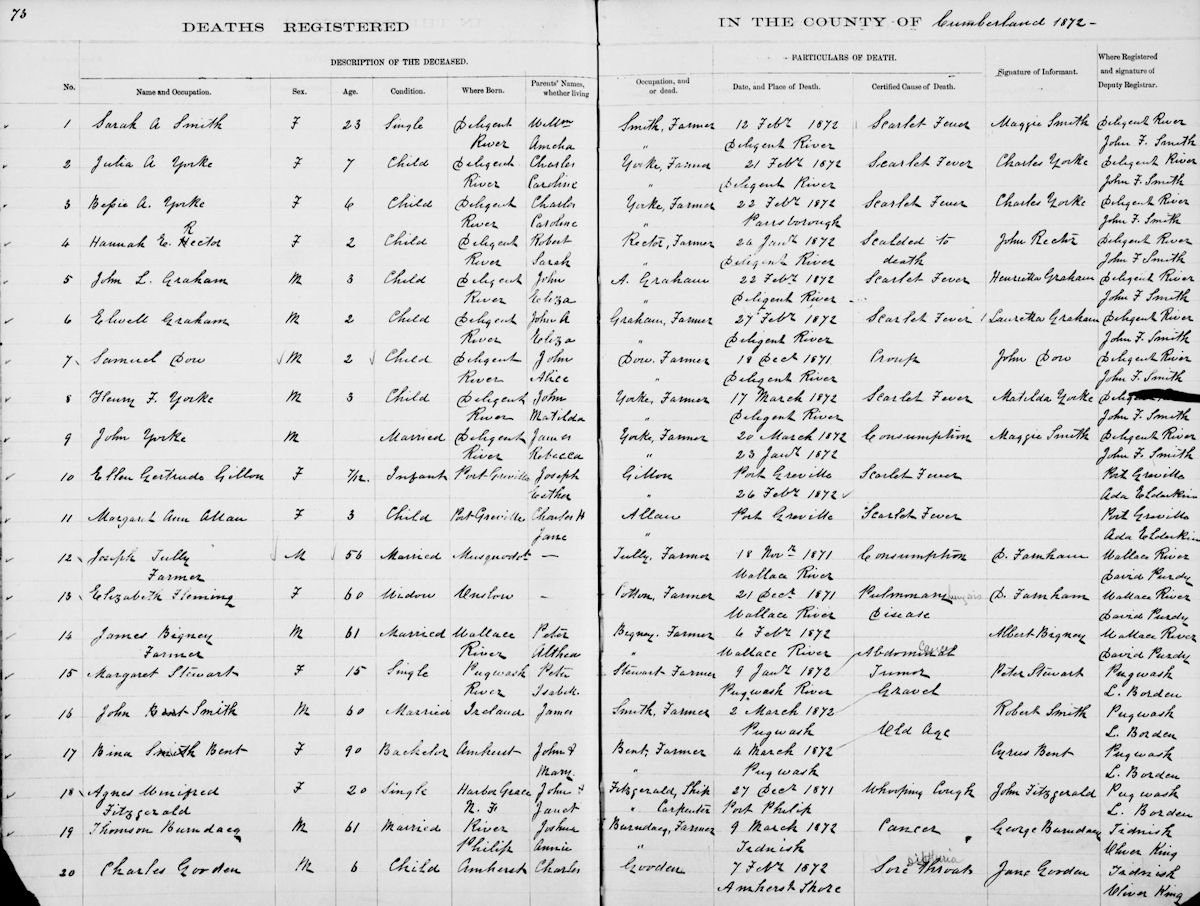 73
DEATHS REGISTERED IN THE COUNTY OF Cumberland 1872-
DESCRIPTION OF THE DECEASED. PARTICULARS OF DEATH.
No. Name and Occupation. Sex. Age. Condition. Where Born. Parents' Names, whether living Occupation, and or dead. Date, and Place of Death. Certified Cause of Death. Signature of Informant. Where Registered and signature of Deputy Registrar.
1 Sarah A Smith F 23 Single Diligent Willm Smith, Farmer 12 Feby 1872 Scarlet Fever Maggie Smith Diligent River
River Amelia " Diligent River John F. Smith
2 Julia A Yorke F 7 Child Diligent Charles Yorke, Farmer 21 Feby 1872 Scarlet Fever Charles Yorke Diligent River
River Caroline " Diligent River John F. Smith
3 Bessie A. Yorke F 6 Child Diligent Charles Yorke, Farmer 22 Feby 1872 Scarlet Fever Charles Yorke Diligent River
River Caroline Parrsborough John F. Smith
R
4 Hannah E. Hector F 2 Child Diligent Robert Rector, Farmer 24 Jany 1872 Scalded to John Rector Diligent River
River Sarah " Diligent River death John F. Smith
5 John L. Graham M 3 Child Diligent John A. Graham 22 Feby 1872 Scarlet Fever Henrietta Graham Diligent River
River Eliza " Diligent River John F Smith
6 Elwell Graham M 2 Child Diligent John A Graham, Farmer 27 Feby 1872 Scarlet Fever Lauretta Graham Diligent River
River Eliza " Diligent River John F. Smith
7 Samuel Dow M 2 Child Diligent John Dow. Farmer 18 Dect 1871 Croup John Dow Diligent River
River Alice " Diligent River John F. Smith
8 Henry F. Yorke M 3 Child Diligent John Yorke, Farmer 17 March 1872 Scarlet Fever Matilda Yorke
River Matilda " Diligent River John F. Smith
9 John Yorke M Married Diligent James Yorke, Farmer 20 March 1872 Consumption Maggie Smith Diligent River
River Rebecca " 23 Jany 1872 John F. Smith
10 Ellen Gertrude Gillon F 7/12. Infant Port Greville Joseph Gillon Port Greville Scarlet Fever Port Greville
Esther " 26 Feby 1872 Ada Elderkin
11 Margaret Ann Allan F 3 Child Port Greville Charles H Allan Port Greville Scarlet Fever Port Greville
Jane " Ada Elderkin
12 Joseph Tully M 56 Married Musquodot — Tully, Farmer 18 Novr 1871 Consumption D. Farnham Wallace River
Farmer Wallace River David Purdy
13 Elizabeth Fleming F 60 Widow Onslow - Cotton, Farmer 21 Dect 1871 Pulmonary D. Farnham Wallace River
Wallace River Disease David Purdy
14 James Bigney M 61 Married Wallace Peter Bigney. Farmer 6 Feby 1872 Albert Bigney Wallace River
Farmer River Althea " Wallace River Abdominal David Purdy
15 Margaret Stewart F 15 Single Pugwash Peter Stewart Farmer 9 Jany 1872 Tumor Peter Stewart Pugwash
River Isabell. Pugwash River Gravel L. Borden
16 John Bent Smith M 60 Married Ireland James Smith, Farmer 2 March 1872 Robert Smith Pugwash
Pugwash Old Age L. Borden
17 Bina Smith Bent F 90 Bachelor Amherst John & Bent, Farmer 4 March 1872 Cyrus Bent Pugwash
Mary " Pugwash L. Borden
18 Agnes Winifred F 20 Single Harbor Grace John & Fitzgerald, Ship 27 Dect 1871 Whooping Cough John Fitzgerald Pugwash
Fitzgerald N. F. Janet " Carpenter Port Philip L. Borden
19 Thomson Burndaeg M 61 Married River Joshua Burndaeg, Farmer 9 March 1872 Cancer George Burndaeg Tidnish
Philip Annie " Tidnish Oliver King
20 Charles Gooden M 6 Child Amherst Charles Gooden 7 Feby 1872 Sore Throat Jane Gooden Tidnish
Amherst Shore Oliver King